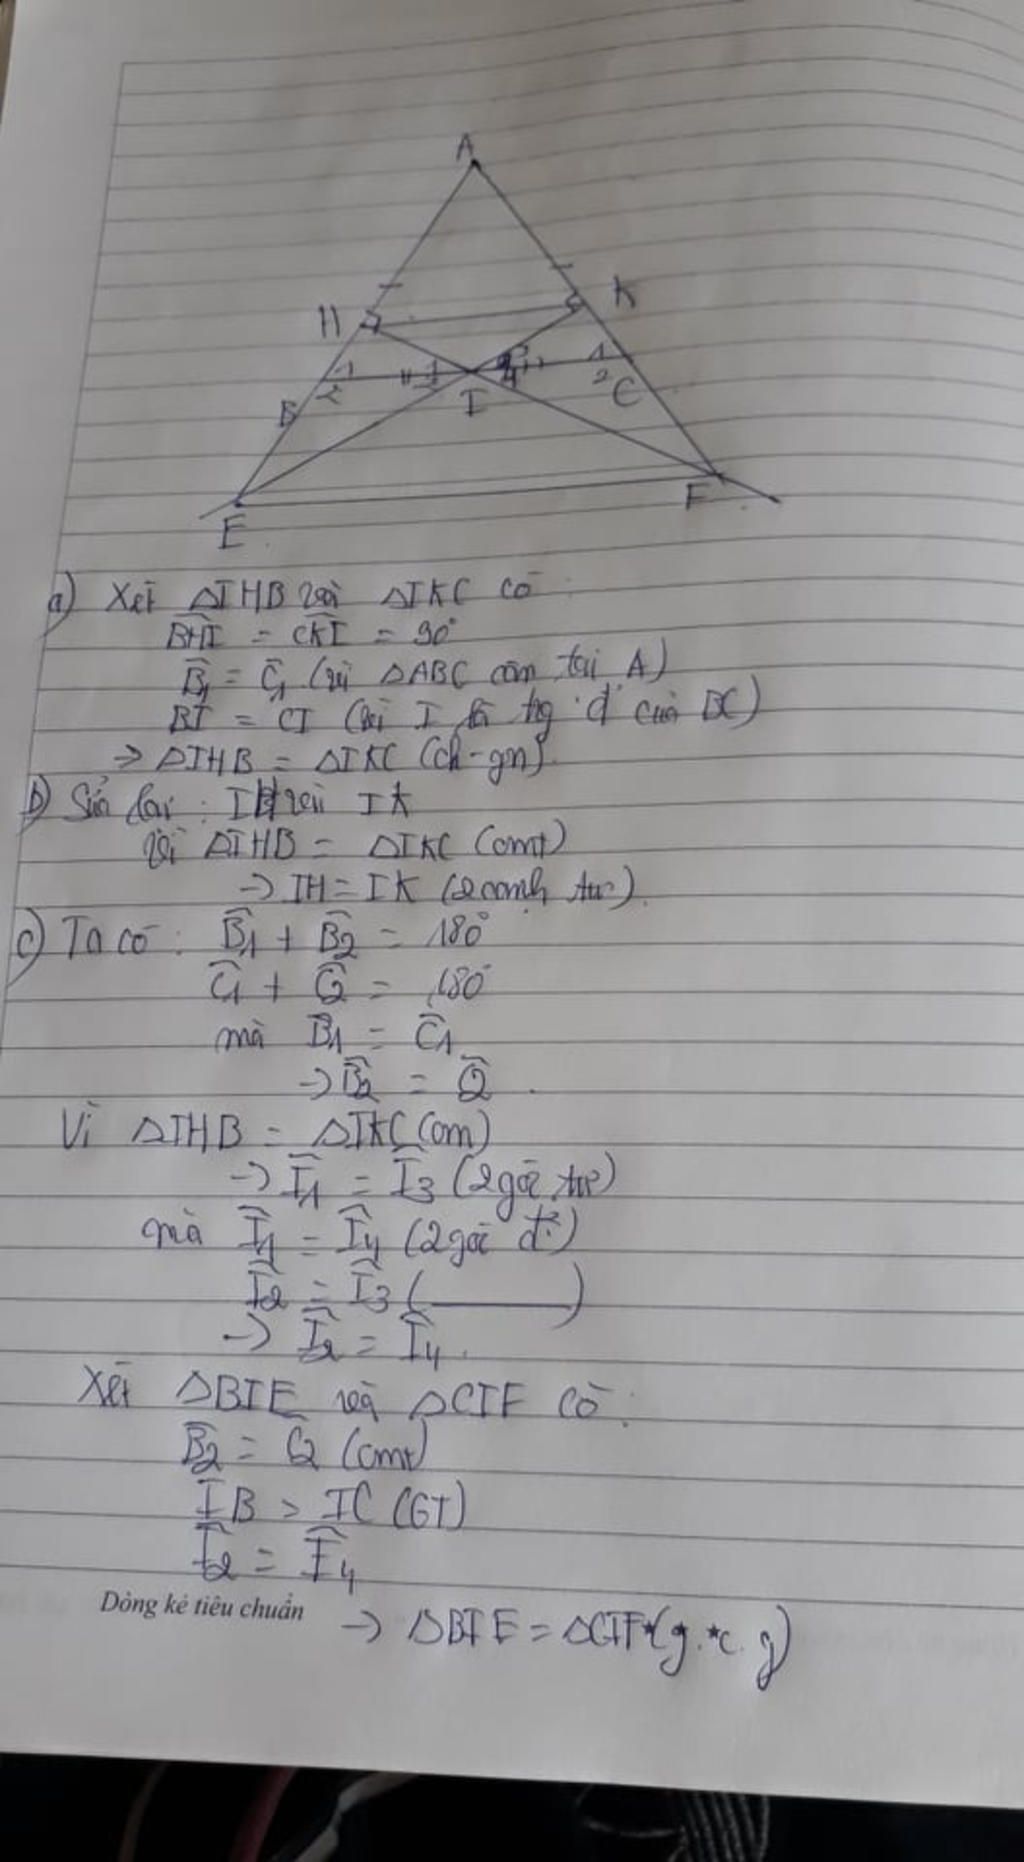 A
H
K
1
2
1
2
1
2
3
4
B
I
C
E
F
a) Xét ΔIHB và ΔIKC có:
BHI = CKI = 90°
B1 = C1 (vì ΔABC cân tại A)
BI = CI (vì I là tg đ' của BC)
→ ΔIHB = ΔIKC (ch-gn).
b) Sửa lại: IH và IK
Vì ΔIHB = ΔIKC (cmt)
→ IH = IK (2 cạnh tư)
c) Ta có: B1 + B2 = 180°
C1 + C2 = 180°
mà B1 = C1
→ B2 = C2.
Vì ΔIHB = ΔIKC (cm)
→ I1 = I3 (2 góc tư)
mà I1 = I4 (2 góc đ²)
I2 = I3 (———)
→ I2 = I4.
Xét ΔBIE và ΔCIF có:
B2 = C2 (cmt)
IB = IC (GT)
I2 = I4
Dòng kẻ tiêu chuẩn
→ ΔBIE = ΔCIF (g.c.g)